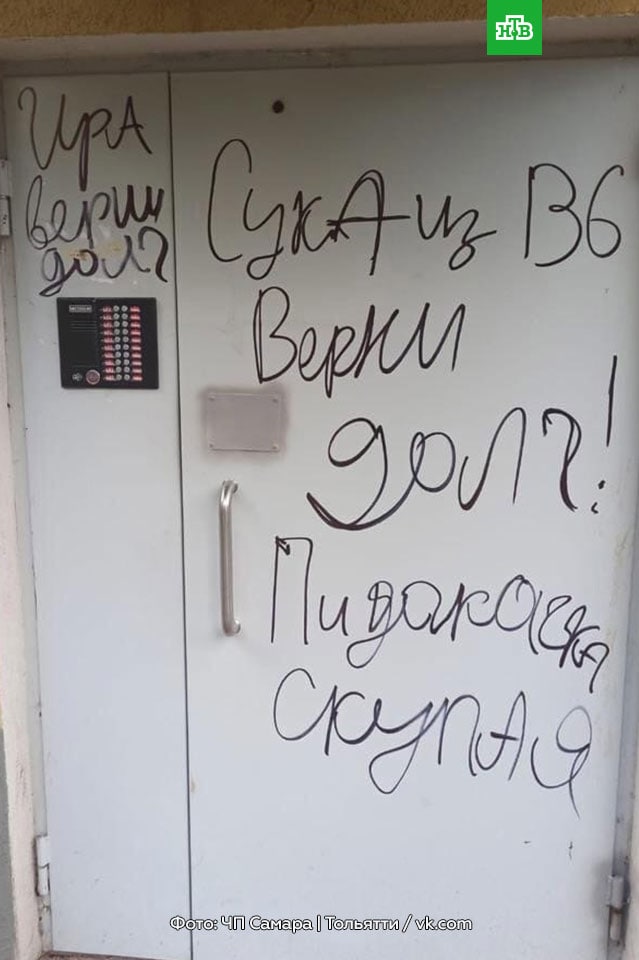 НТВ
Ира
верни
долг
Сука из В6
Верни
долг!
скупая
Фото: ЧП Самара | Тольятти / vk.com